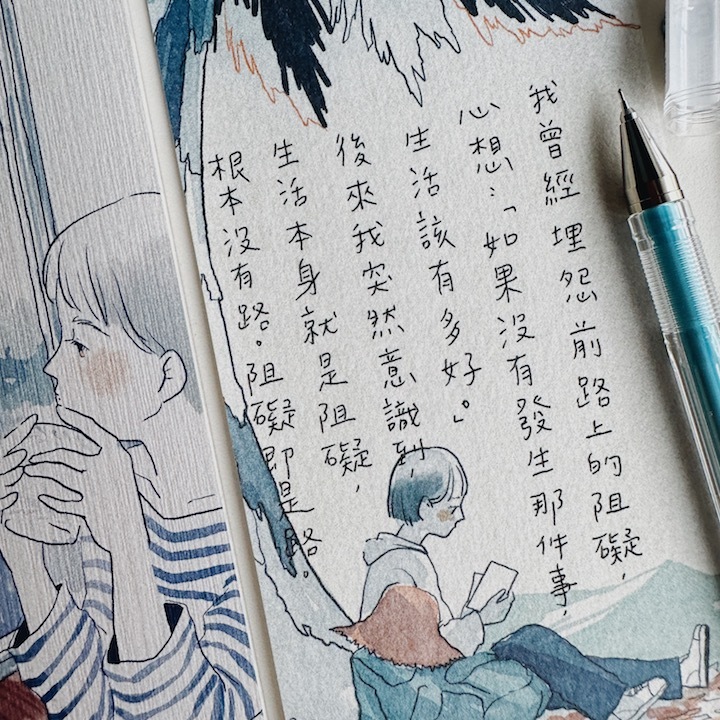 我曾經埋怨前路上的阻礙，
心想：「如果沒有發生那件事，
生活該有多好。」
後來我突然意識到，
生活本身就是阻礙，
根本沒有路。阻礙即是路。